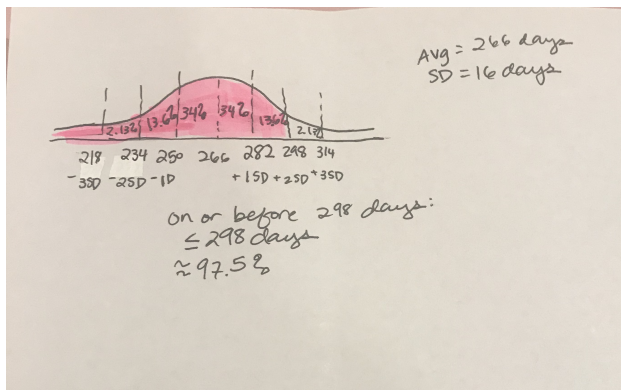 Avg = 266 days
SD = 16 days
2.13% 13.6% 34% 34% 13.6% 2.13
218 234 250 266 282 298 314
-3SD -2SD -1D +1SD +2SD +3SD
on or before 298 days:
≤ 298 days
≈ 97.5%